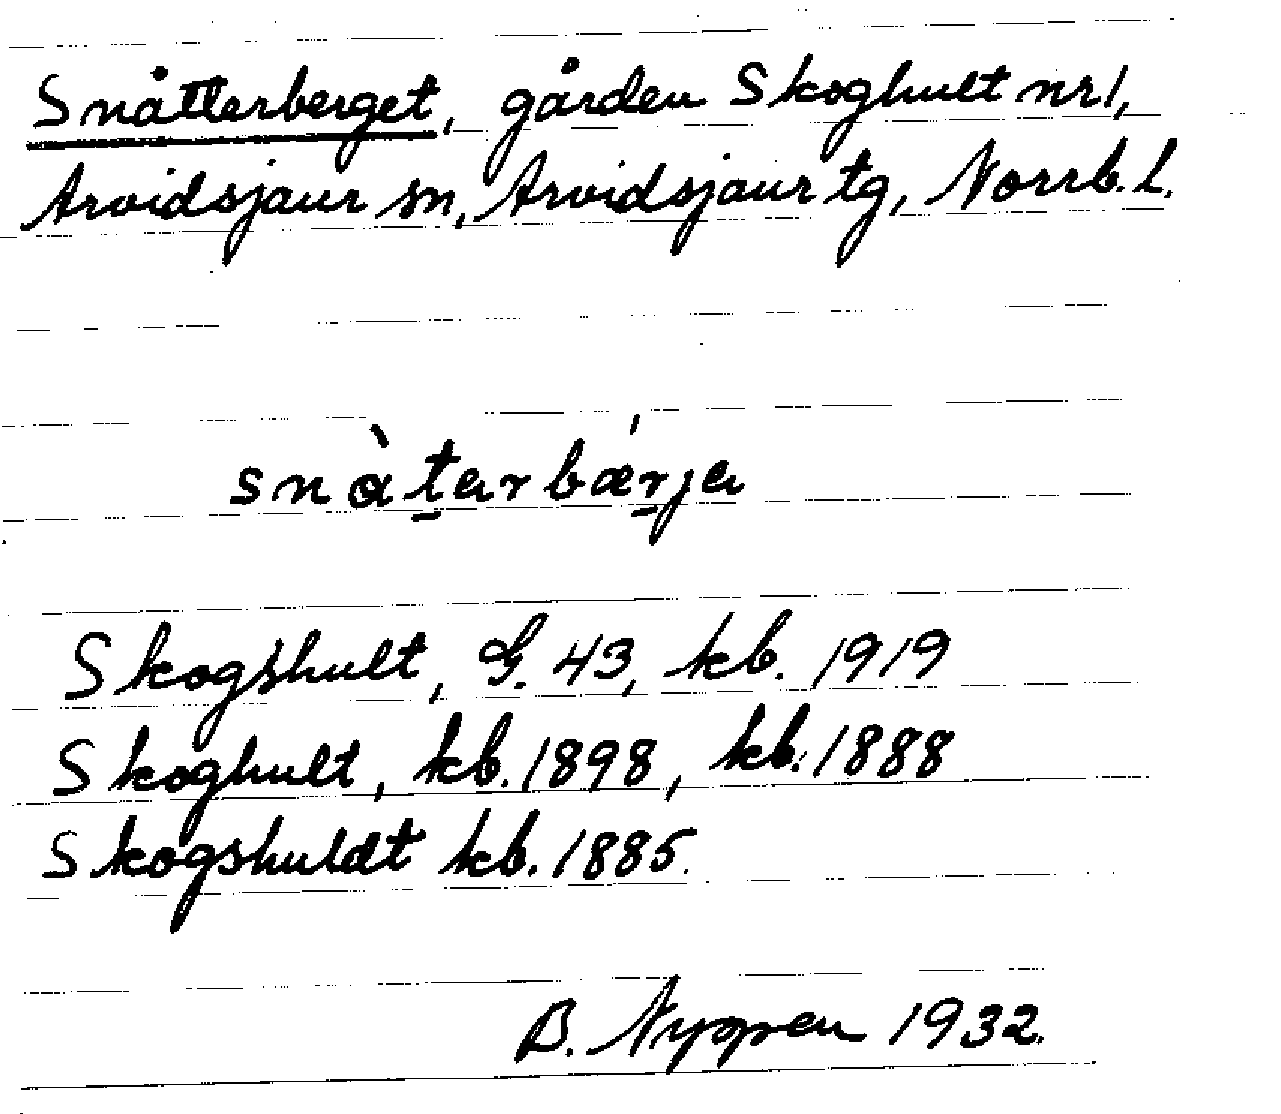 Snåtterberget, gården Skoghult nr 1,
Arvidsjaur sn, Arvidsjaur tg, Norrb. l.
snὰt̠arbǽr̠ja
Skogshult, G. 43, kb. 1919
Skoghult, kb. 1898, kb. 1888
Skogshuldt kb. 1885.
B. Nyppen 1932.